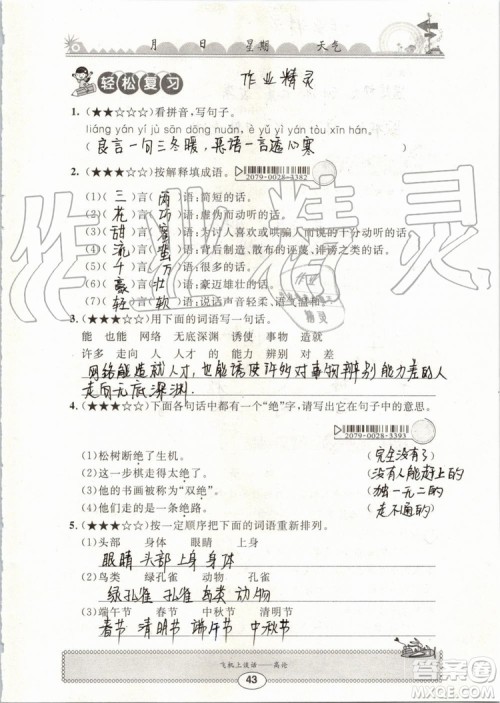 月 日 星期 天气
轻松复习 作业精灵
1. (★★☆☆☆)看拼音,写句子。
liáng yán yí jù sān dōng nuǎn, è yǔ yí jù liù yuè hán
良言一句三冬暖,恶语一言透心寒
2. (★★☆☆☆)按解释填成语。
2079-0028-3382
(1)(三)言(两)语:简短的话。
(2)(花)言(巧)语:虚伪而动听的话。
(3)(甜)言(蜜)语:为讨人喜欢或哄骗人而说的十分动听的话。
(4)(流)言(蜚)语:背后制造、散布的诬蔑、诽谤之类的话。
(5)(千)言(万)语:很多的话。
(6)(豪)言(壮)语:豪迈雄壮的话。
(7)(轻)言(软)语:说话声音轻柔、语气温和
3. (★★★☆☆)用下面的词语写一句话。
能 也能 网络 无底深渊 诱使 事物 造就
许多 走向 人 人才 的 能力 辨别 对 差
网络能造就人才,也能诱使许多对事物辨别能力差的人
走向无底深渊.
4. (★★★☆☆)下面各句话中都有一个“绝”字,请写出它在句子中的意思。
2079-0028-3393
(1)松树断绝了生机。 (完全没有了)
(2)这一步棋走得真绝。 (没有人能赶上的)
(3)他的书画被称为“双绝”。 (独一无二的)
(4)他们走的是一条绝路。 (走不通的)
5. (★★★☆☆)按一定顺序把下面的词语重新排列。
(1)头部 身体 眼睛 上身
眼睛 头部 上身 身体
(2)鸟类 绿孔雀 动物 孔雀
绿孔雀 孔雀 鸟类 动物
(3)端午节 春节 中秋节 清明节
春节 清明节 端午节 中秋节
飞机上谈话——高论
43